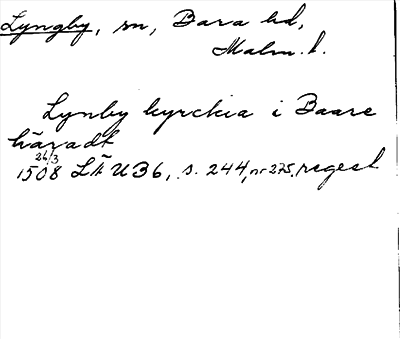 Lyngby, sn, Bara hd,
Malm. l.
Lynby kyrckia i Baare
häradt
24/3
1508 LÄUB6, s. 244, nr 275, regest